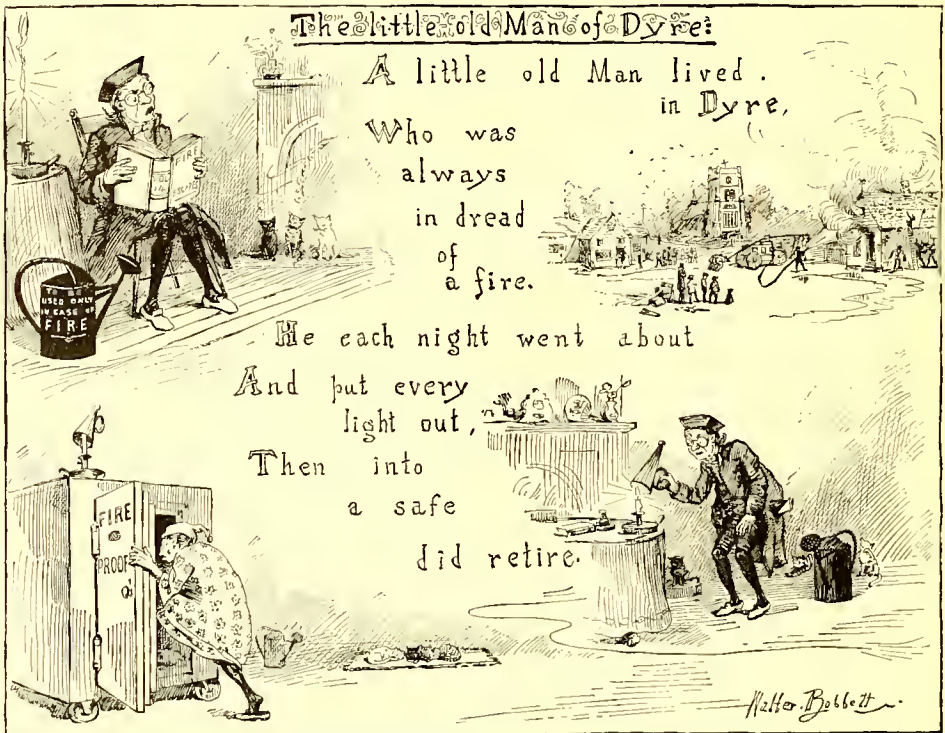 The little old Man of Dyre:
A little old Man lived.
in Dyre,
Who was
always
in dread
of
a fire.
He each night went about
And put every
light out,
Then into
a safe
did retire.
FIRE
TO BE
USED ONLY
IN CASE OF
FIRE
FIRE
PROOF
Walter. Bobbett